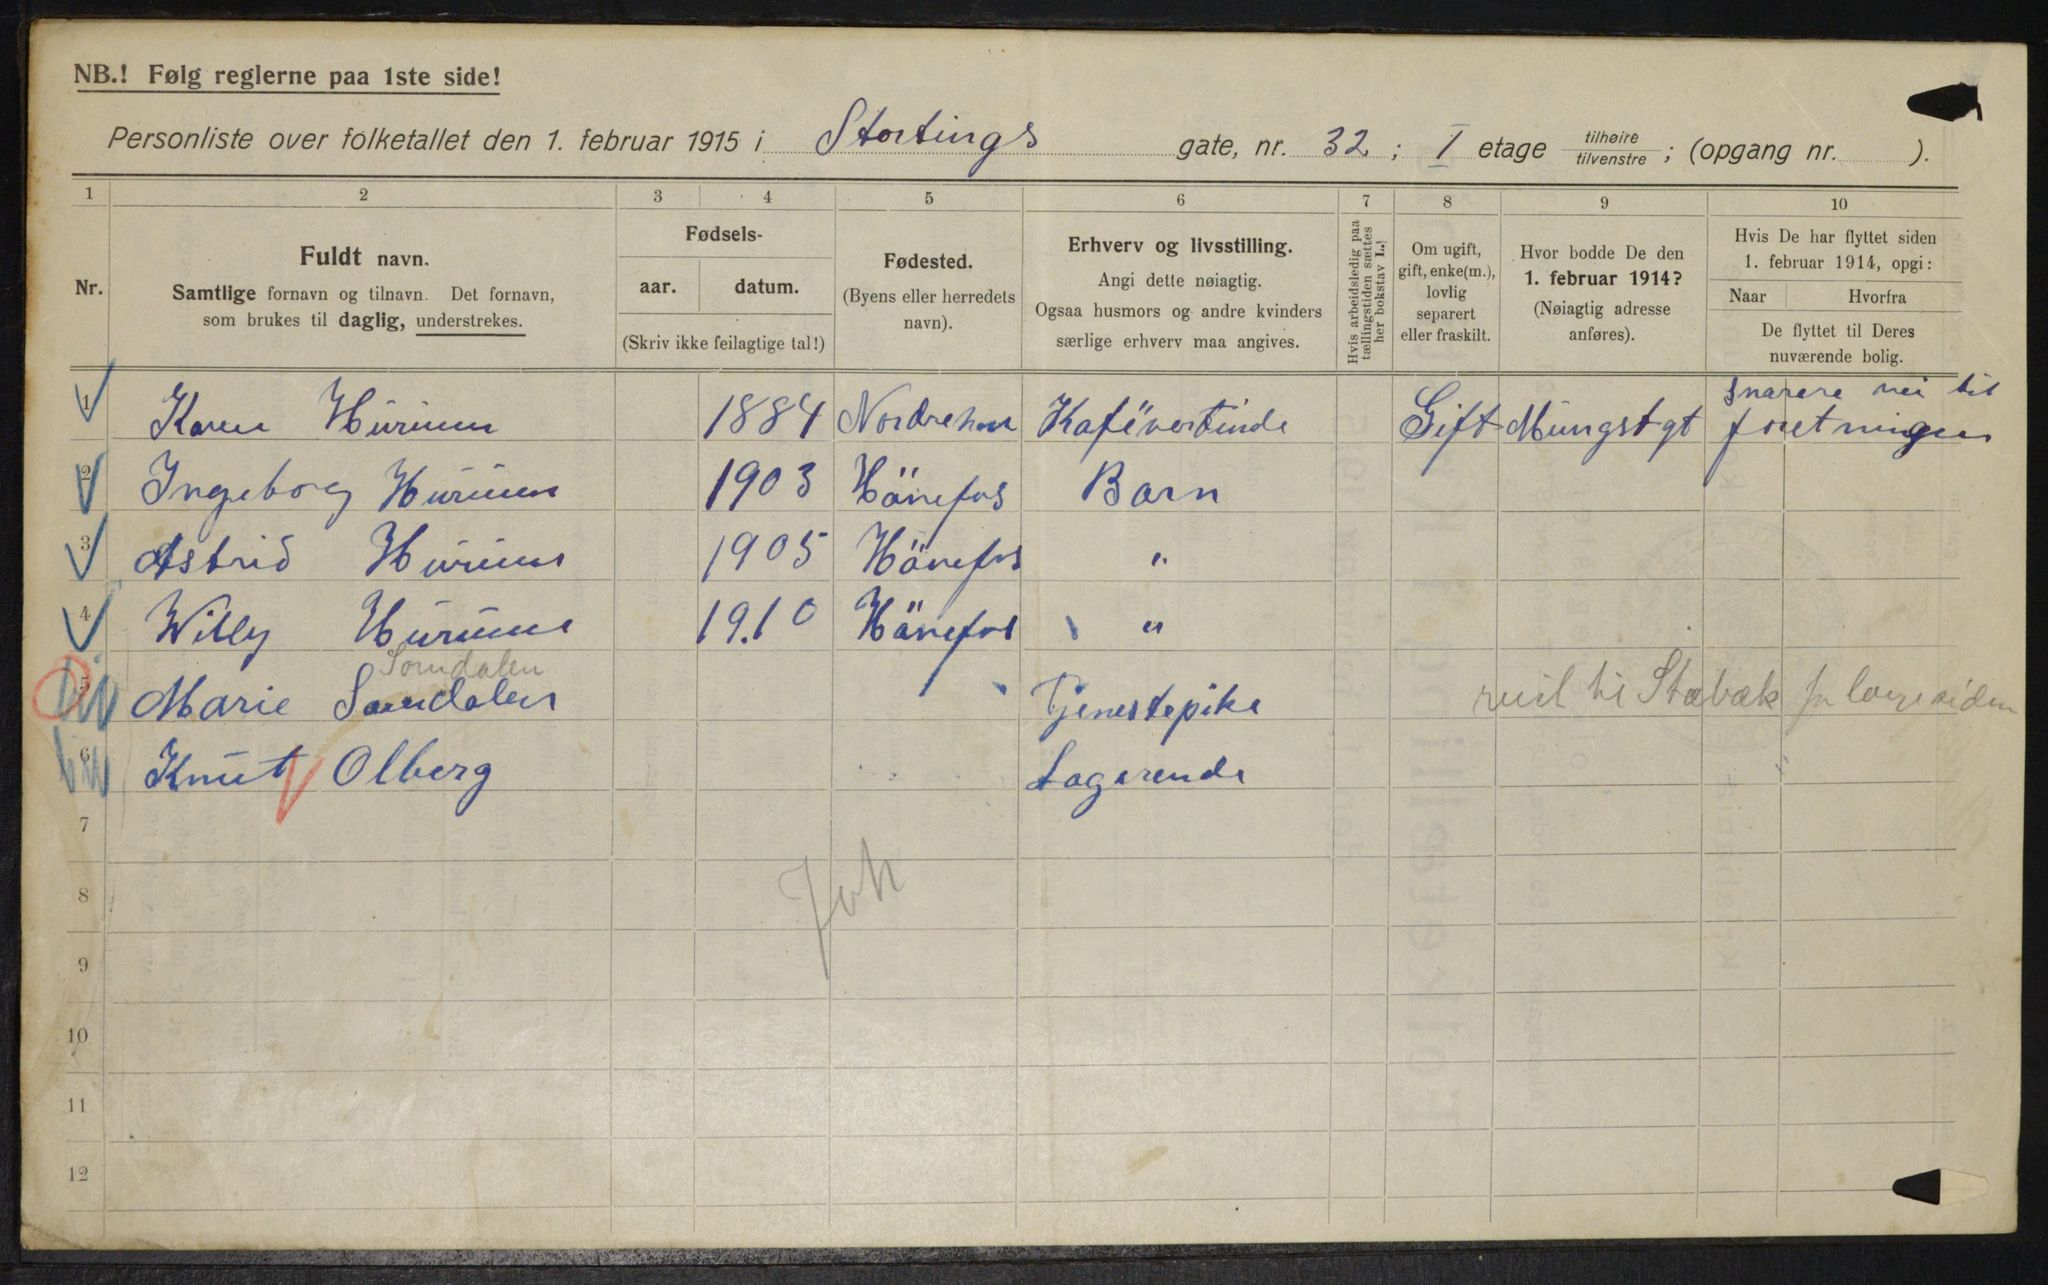 NB.! Følg reglerne paa 1ste side!
Personliste over folketallet den 1. februar 1915 i Stortings gate, nr. 32 ; I etage tilhøire tilvenstre ; (opgang nr. ).
1 2 3 4 5 6 7 8 9 10
Nr.
Fuldt navn.
Samtlige fornavn og tilnavn. Det fornavn,
som brukes til daglig, understrekes.
Fødsels-
aar. datum.
(Skriv ikke feilagtige tal!)
Fødested.
(Byens eller herredets
navn).
Erhverv og livsstilling.
Angi dette nøiagtig.
Ogsaa husmors og andre kvinders
særlige erhverv maa angives.
Hvis arbeidsledig paa
tællingstiden sættes
her bokstav L.!
Om ugift,
gift, enke(m.),
lovlig
separert
eller fraskilt.
Hvor bodde De den
1. februar 1914?
(Nøiagtig adresse
anføres).
Hvis De har flyttet siden
1. februar 1914, opgi:
Naar Hvorfra
De flyttet til Deres
nuværende bolig.
snarere til
1 Karen Hurum 1884 Nordrehov Kafévertinde Gift Mungstgt foretningen
2 Ingeborg Hurum 1903 Hönefos Barn
3 Astrid Hurum 1905 Hönefos "
4 Willy Hurum 1910 Hönefos "
Somdalen
5 Marie Somdalen Tjenestepike til Stabæk
6 Knut Olberg Logerende
7
8
9
10
11
12